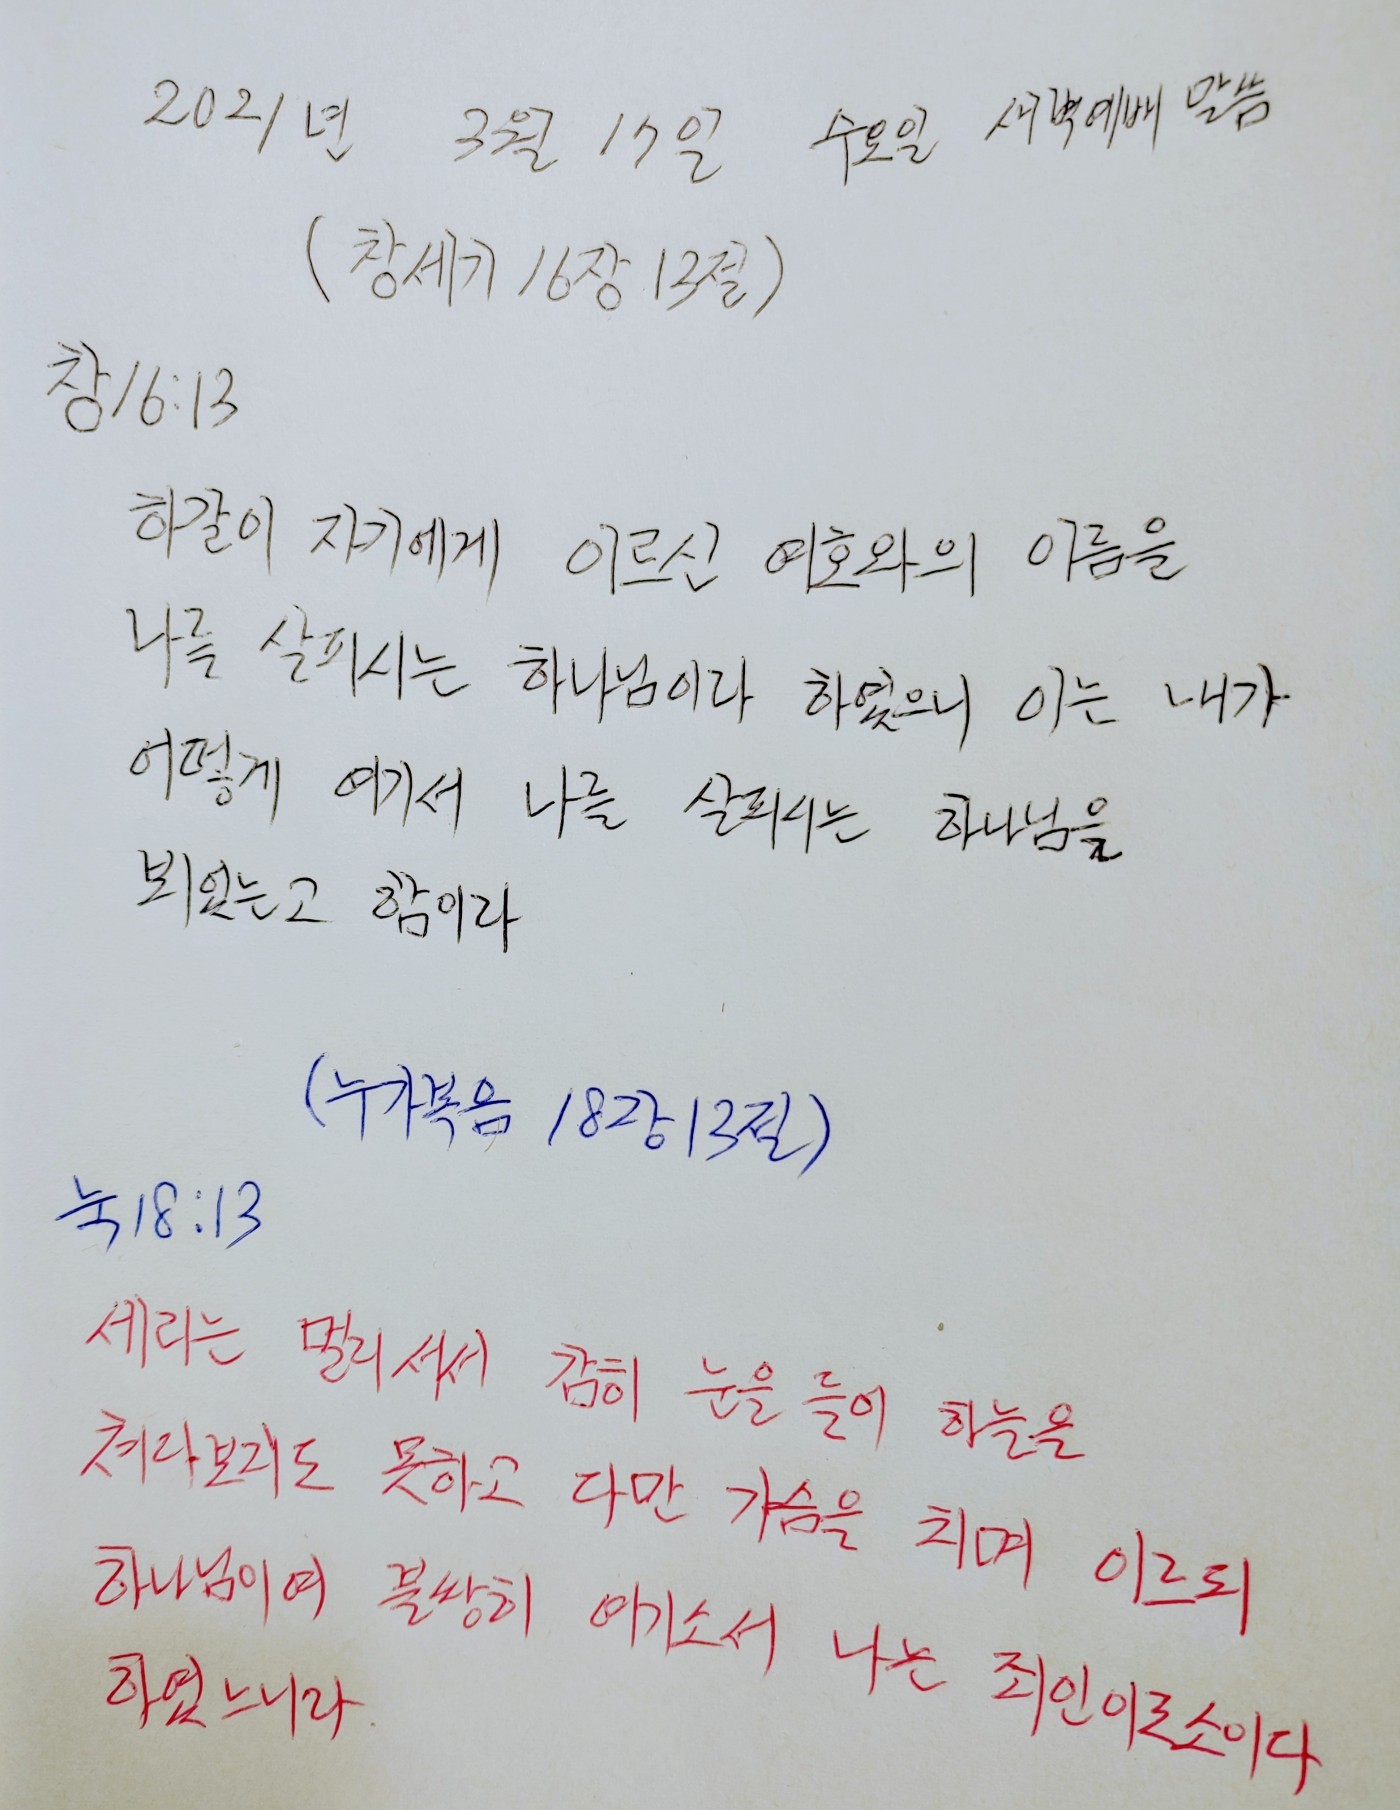 2021년 3월 17일 수요일 새벽예배 말씀
(창세기 16장 13절)
창16:13
하갈이 자기에게 이르신 여호와의 이름을
나를 살피시는 하나님이라 하였으니 이는 내가
어떻게 여기서 나를 살피시는 하나님을
뵈었는고 함이라
(누가복음 18장 13절)
눅18:13
세리는 멀리 서서 감히 눈을 들어 하늘을
쳐다보지도 못하고 다만 가슴을 치며 이르되
하나님이여 불쌍히 여기소서 나는 죄인이로소이다
하였느니라